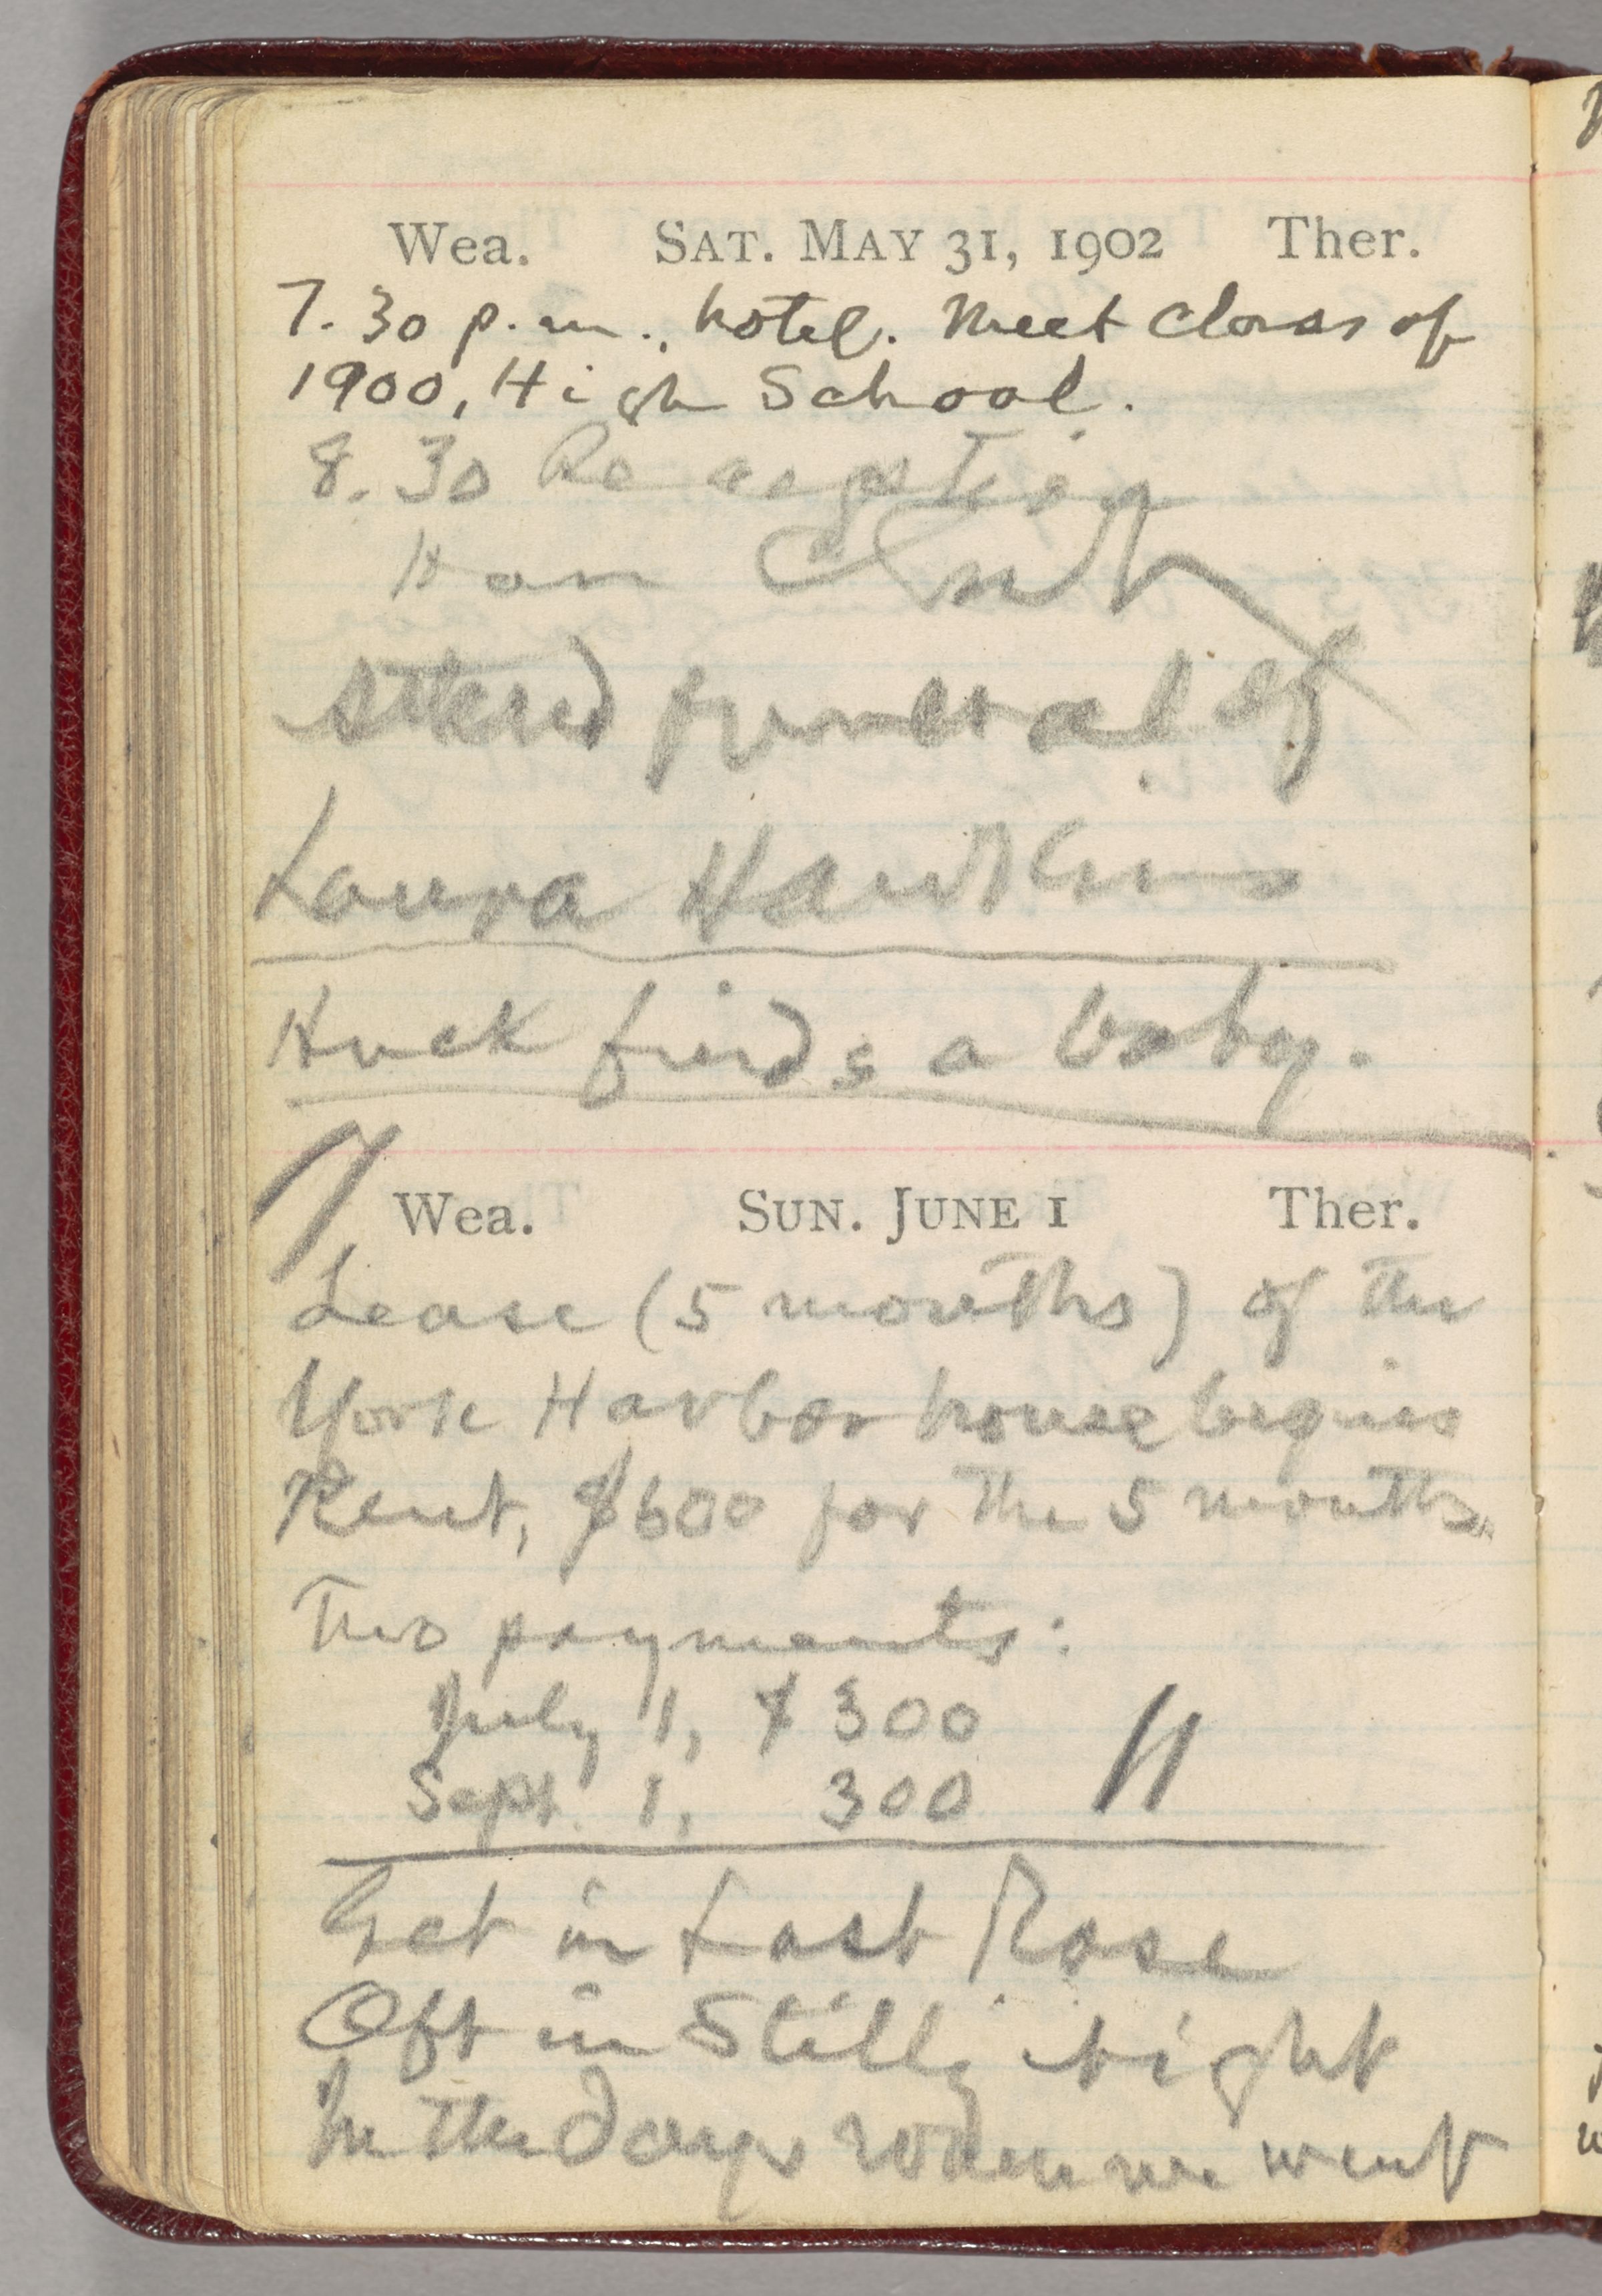 Wea. SAT. MAY 31, 1902 Ther.
7.30 p.m., hotel. Meet class of
1900, High School.
8.30 Reception
Han Club
funeral of
Laura Hawkins
Huck finds a baby.
Wea. SUN. JUNE 1 Ther.
Lease (5 months) of the
York Harbor house begins
Rent, $600 for the 5 months.
Two payments:
July 1, $300
Sept. 1, 300
Get in Last Rose
Oft in Stilly Night
In the days when we went